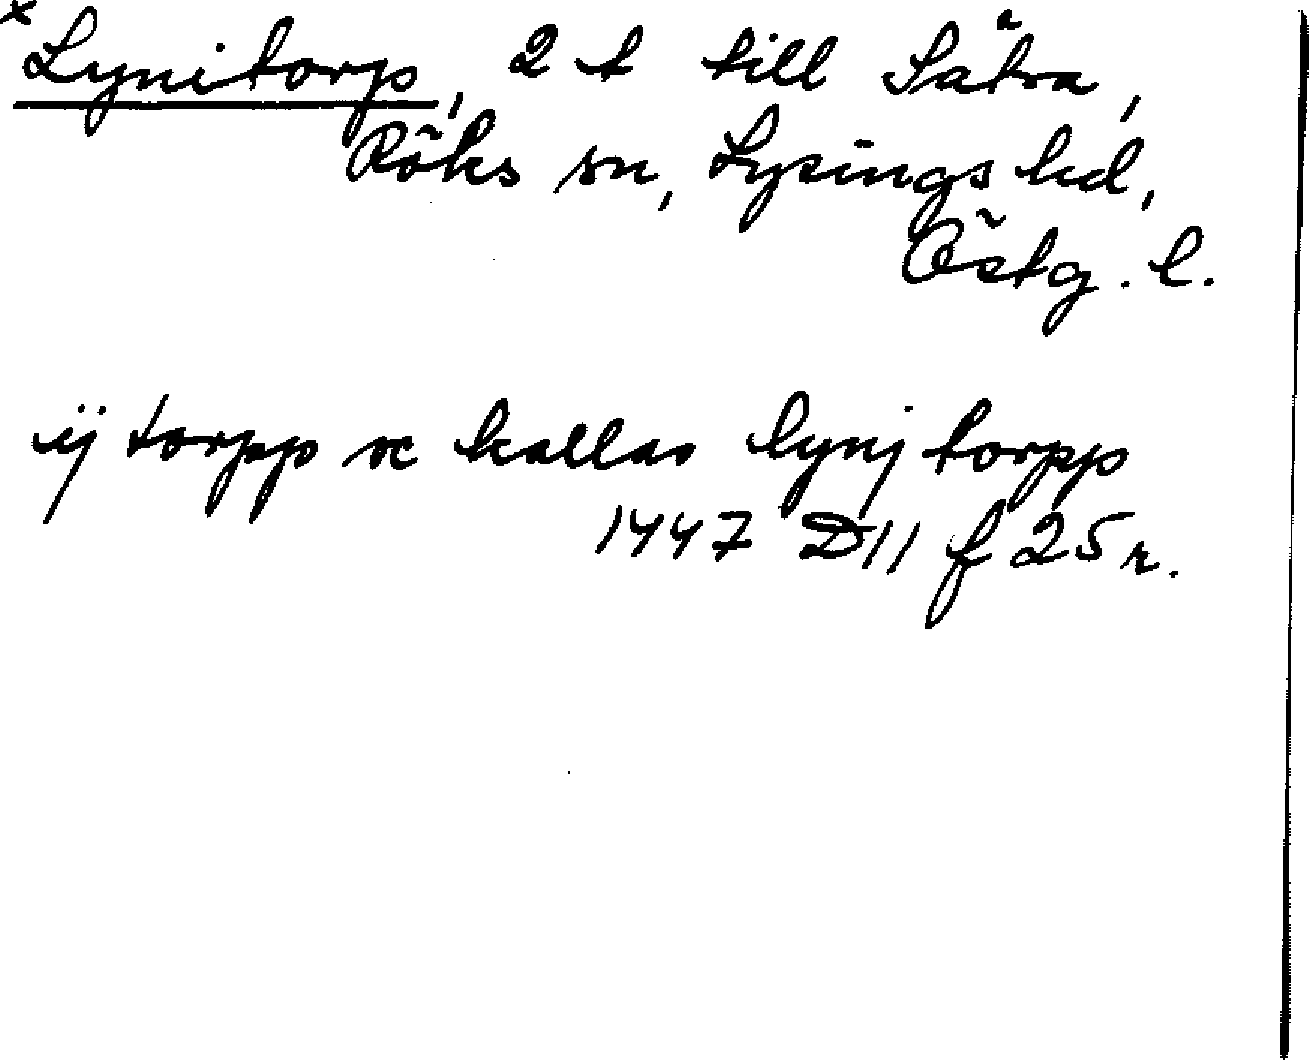 x Lynitorp, 2 t till Sätra,
Röks sn, Lysings hd,
Östg. l.
ij torpp sc kallas lynj torpp
1447 D11 f 25 r.